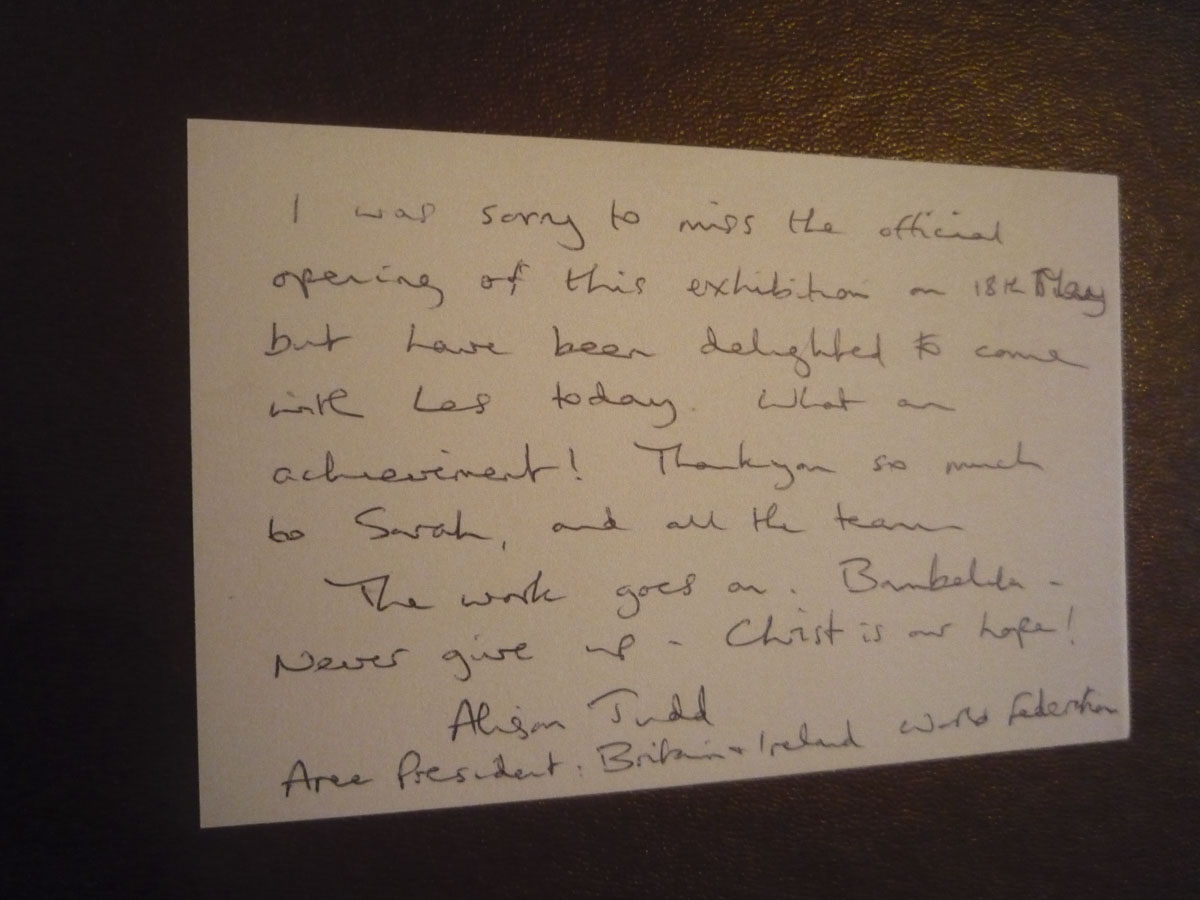 I was sorry to miss the official
opening of this exhibition on 18th May
but have been delighted to come
with Les today. What an
achievement! Thankyou so much
to Sarah, and all the team
The work goes on. Bambelela -
Never give up - Christ is our hope!
Alison Judd
Area President: Britain + Ireland World Federation